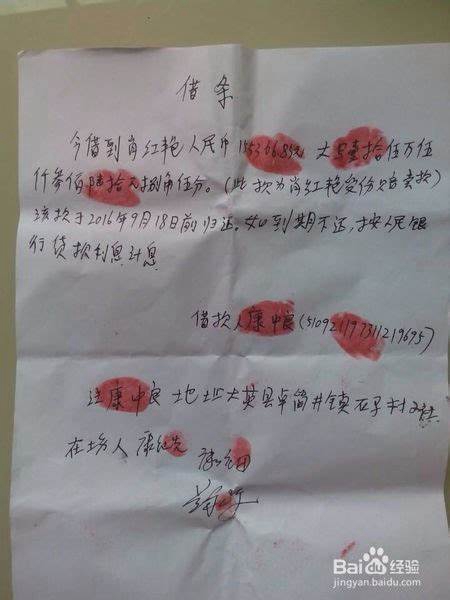 借条
今借到肖红艳人民币 大写壹拾伍万伍
仟叁佰陆拾 捌角伍分。(此款为肖红艳 卖款)
该款于2016年9月18日前归还。如到期不还,按人民银
行贷款利息计息
借款人康中良(510921197311219695)
康中良 地址大英县卓筒井镇石子村
在场人 康
Bai du 经验
jingyan.baidu.com